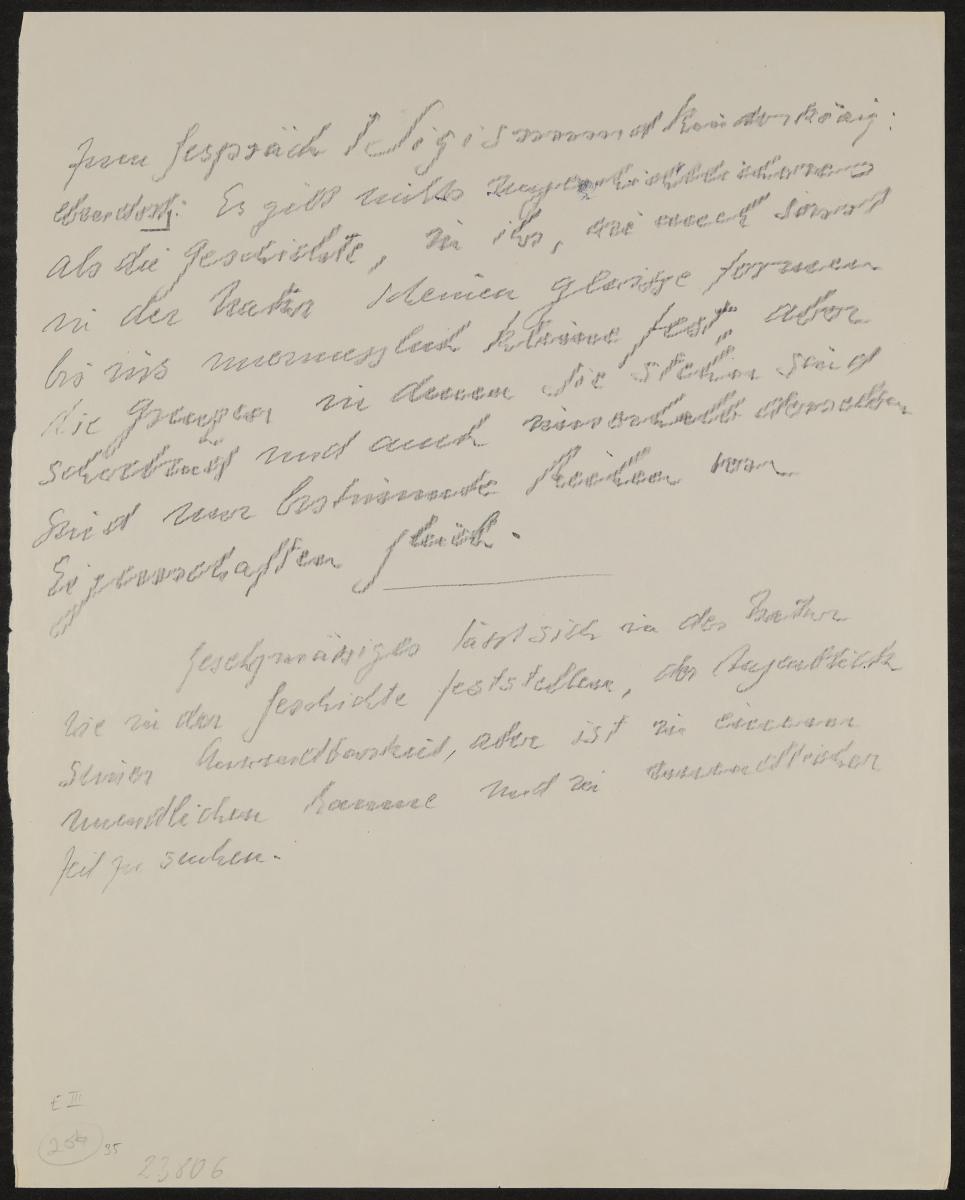 Zum Gespräch Sigismund Kinderkönig:
ebendort: Es gibt nichts
als die Geschichte, in ihr, wie auch sonst
in der Natur scheinen gewisse Formen
bis ins unermesslich kleine fest, aber
die Grenzen in denen sie stehn sind
schwebend und auch innerhalb derselben
sind nur bestimmte Reihen von
Eigenschaften gleich.
Gesetzmässiges lässt sich in der Natur
wie in der Geschichte feststellen, der Augenblick
seiner Anwendbarkeit, aber ist in einem
unendlichen Raume und in unendlicher
Zeit zu suchen.
E III
254 35
23806